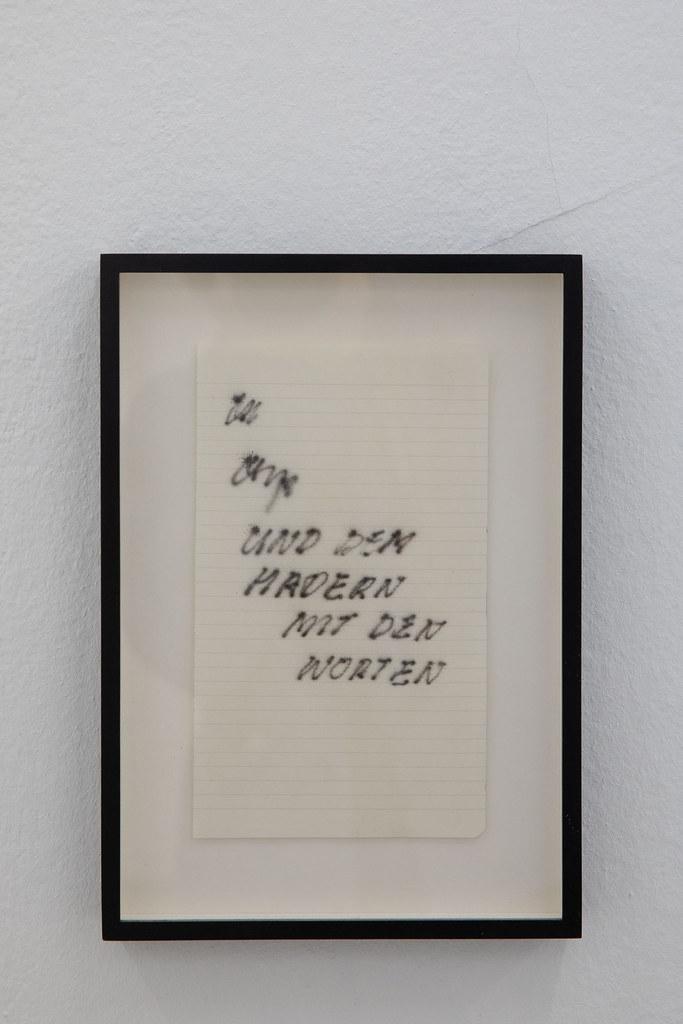 in
UND DEM
HADERN
MIT DEN
WORTEN